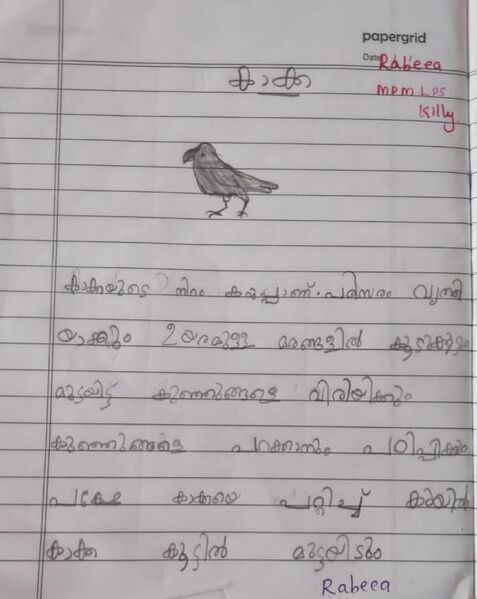 papergrid
Date: Rabeea
MPM LPS
Killy
കാക്ക
കാക്കയുടെ നിറം കറുപ്പാണ്. പരിസരം വൃത്തി
യാക്കും ഉയരമുള്ള മരങ്ങളിൽ കൂടുകൂട്ടും
മുട്ടയിട്ട് കുഞ്ഞുങ്ങളെ വിരിയിക്കും
കുഞ്ഞുങ്ങളെ പറക്കാനും പഠിപ്പിക്കും
പക്ഷേ കാക്കയെ പറ്റിച്ച് കുയിൽ
കാക്ക കൂട്ടിൽ മുട്ടയിടും
Rabeea